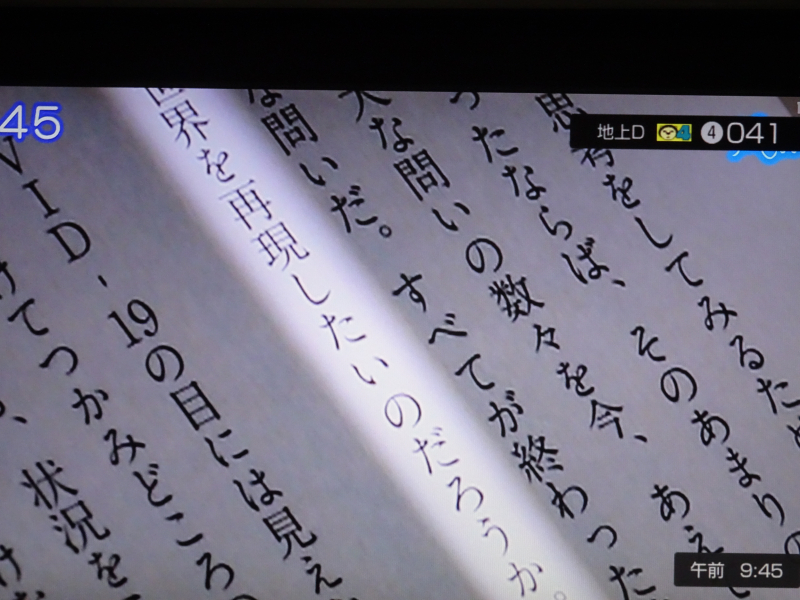 45
地上D 4 041
をしてみるた
ったならば、そのあまりの
大な問いの数々を今、あえて
な問いだ。すべてが終わった
世界を再現したいのだろうか。
VID-19の目には見え
けてつかみどころの
、状況を
午前 9:45